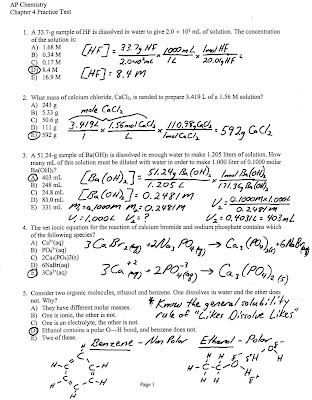 AP Chemistry
Chapter 4 Practice Test
1. A 33.7-g sample of HF is dissolved in water to give 2.0 × 10² mL of solution. The concentration
of the solution is:
A) 1.68 M
B) 0.34 M
C) 0.17 M
D) 8.4 M
E) 16.9 M
[HF] = 33.7g HF / 2.0×10² mL | 1000mL / 1L | 1mol HF / 20.01g HF =
[HF] = 8.4 M
2. What mass of calcium chloride, CaCl₂, is needed to prepare 3.419 L of a 1.56 M solution?
A) 243 g
B) 5.33 g
C) 50.6 g
D) 111 g
E) 592 g
mole CaCl₂
3.419L / 1 | 1.56mol CaCl₂ / L | 110.98g CaCl₂ / 1mol CaCl₂ = 592g CaCl₂
3. A 51.24-g sample of Ba(OH)₂ is dissolved in enough water to make 1.205 liters of solution. How
many mL of this solution must be diluted with water in order to make 1.000 liter of 0.100 molar
Ba(OH)₂?
A) 403 mL
B) 248 mL
C) 24.8 mL
D) 83.0 mL
E) 331 mL
[Ba(OH)₂] = 51.24g Ba(OH)₂ / 1.205 L | 1mol Ba(OH)₂ / 171.36g Ba(OH)₂
[Ba(OH)₂] = 0.2481 M
M₁=0.1000M M₂=0.2481M
V₁=1.000L V₂=?
V₂ = 0.1000M×1.000L / 0.2481M
V₂ = 0.4031L = 403mL
4. The net ionic equation for the reaction of calcium bromide and sodium phosphate contains which
of the following species?
A) Ca²⁺(aq)
B) PO₄³⁻(aq)
C) 2Ca₃(PO₄)₂(s)
D) 6NaBr(aq)
E) 3Ca²⁺(aq)
3CaBr₂(aq) + 2Na₃PO₄(aq) → Ca₃(PO₄)₂(s) + 6NaBr(aq)
3Ca⁺² + 2PO₄⁻³ → Ca₃(PO₄)₂(s)
5. Consider two organic molecules, ethanol and benzene. One dissolves in water and the other does
not. Why?
A) They have different molar masses.
B) One is ionic, the other is not.
C) One is an electrolyte, the other is not.
D) Ethanol contains a polar O—H bond, and benzene does not.
E) Two of these.
* Know the general solubility
rule of "Likes Dissolve Likes"
Benzene - Non Polar Ethanol - Polar
Page 1